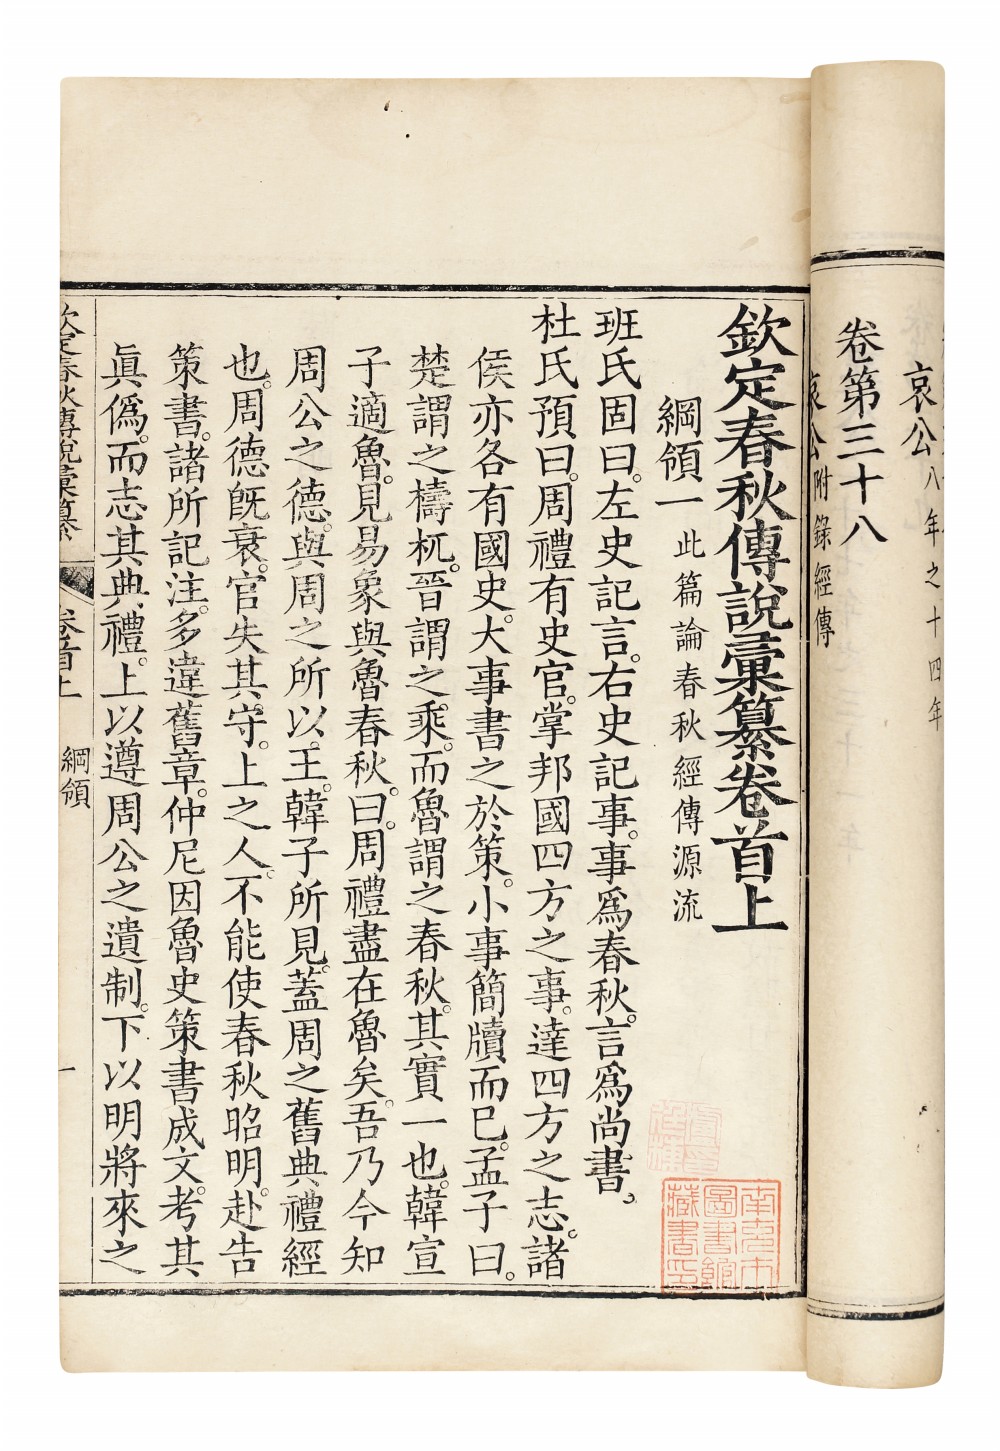 哀公八年之十四年
卷第三十八
哀公附錄經傳
欽定春秋傳說彙纂卷首上
綱領一此篇論春秋經傳源流
班氏固曰。左史記言。右史記事。事為春秋。言為尚書。
杜氏預曰。周禮有史官。掌邦國四方之事。達四方之志。諸
侯亦各有國史。大事書之於策。小事簡牘而已。孟子曰。
楚謂之檮杌。晉謂之乘。而魯謂之春秋。其實一也。韓宣
子適魯。見易象與魯春秋。曰。周禮盡在魯矣。吾乃今知
周公之德。與周之所以王。韓子所見。蓋周之舊典禮經
也。周德既衰。官失其守。上之人。不能使春秋昭明。赴告
策書。諸所記注。多違舊章。仲尼因魯史策書成文。考其
眞偽。而志其典禮。上以遵周公之遺制。下以明將來之
欽定春秋傳說彙纂
卷首上
綱領
一
南京市
圖書館
藏書印